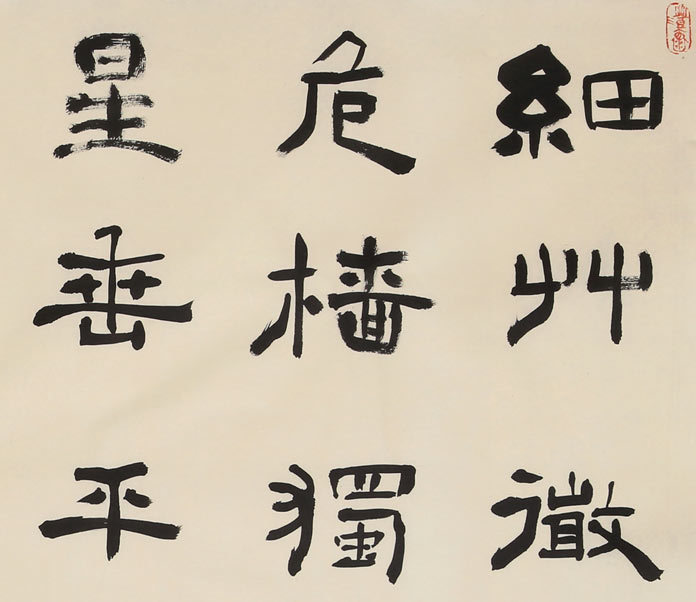 細艸微
危檣獨
星垂平